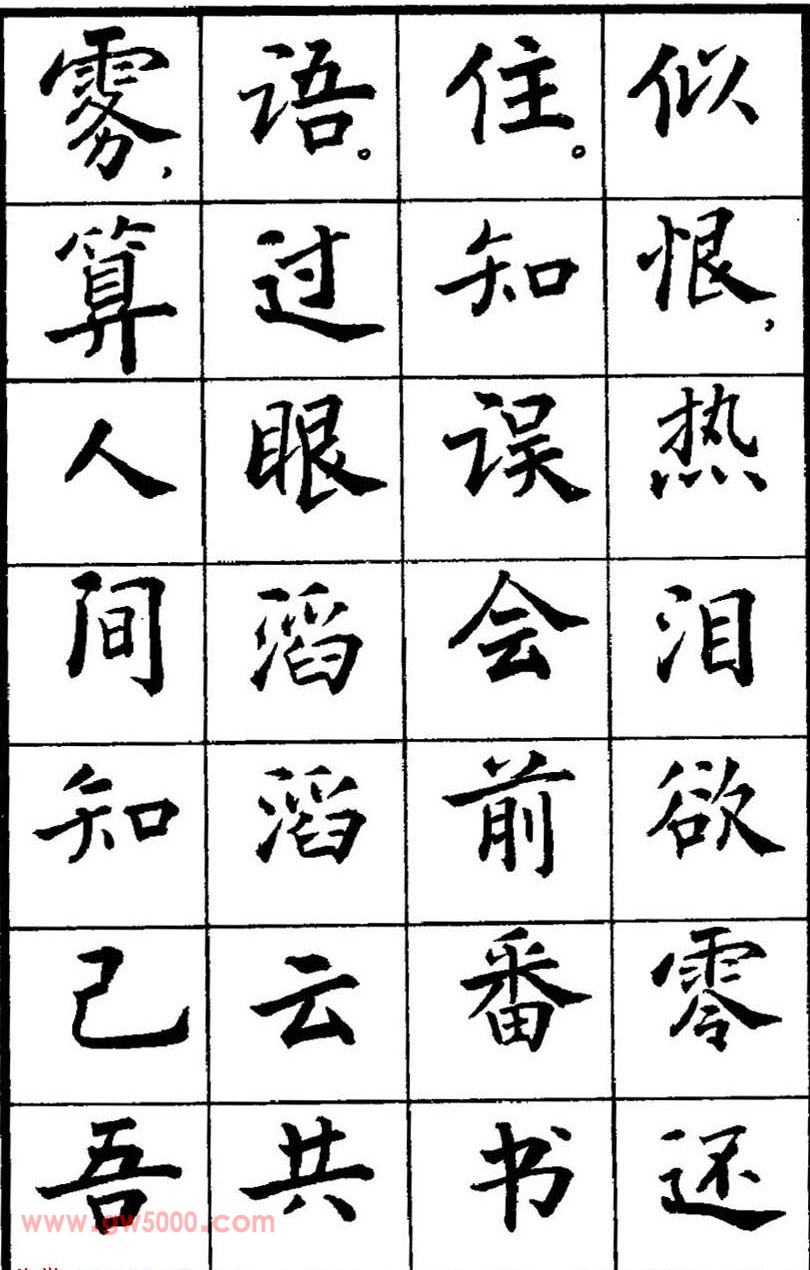 似恨，热泪欲零还
住。知误会前番书
语。过眼滔滔云共
雾，算人间知己吾
www.gw5000.com